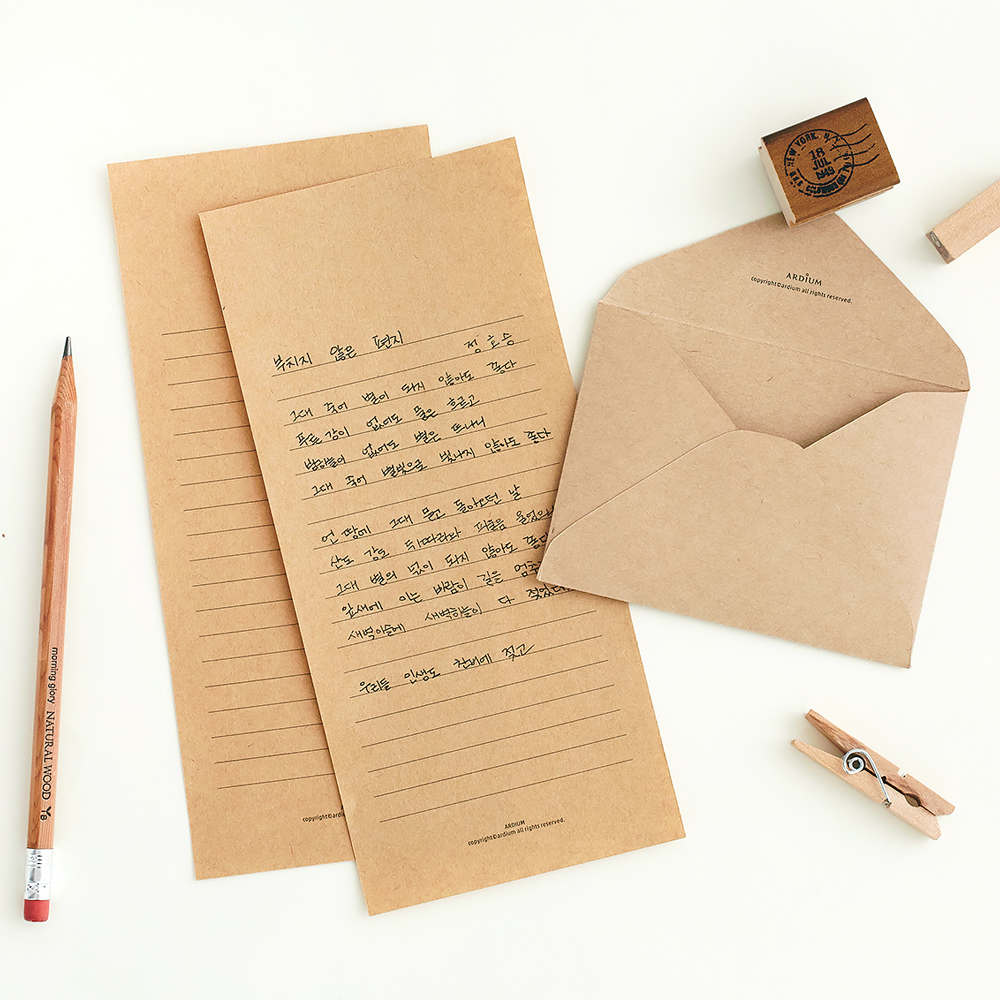 부치지 않은 편지
정호승
그대 죽어 별이 되지 않아도 좋다
푸른 강이 없어도 물은 흐르고
밤하늘이 없어도 별은 뜨나니
그대 죽어 별빛으로 빛나지 않아도 좋다
언 땅에 그대 묻고 돌아오던 날
산도 강도 뒤따라와 피울음 울었으나
그대 별의 넋이 되지 않아도 좋다
잎새에 이는 바람이 길을 멈추
새벽이슬에 새벽하늘이 다 젖었다
우리들 인생도 찬비에 젖고
ARDIUM
copyright©ardium all rights reserved.
copyright©ardium
ARDIUM
copyright©ardium all rights reserved.
NEW YORK, N.Y.
18
JUL
morning glory NATURAL WOOD B